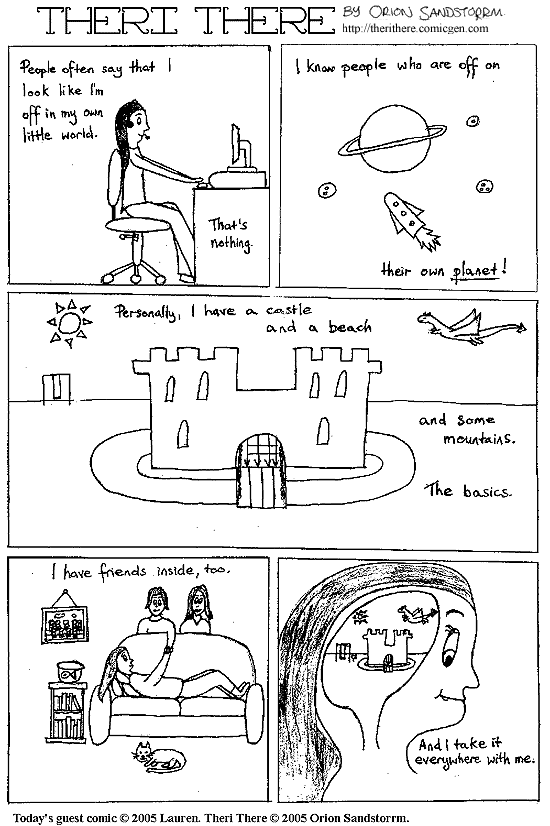 THERI THERE
BY ORION SANDSTORRM.
http://therithere.comicgen.com
People often say that I
look like I'm
off in my own
little world.
That's
nothing.
I know people who are off on
their own planet!
Personally, I have a castle
and a beach
and some
mountains.
The basics.
I have friends inside, too.
And I take it
everywhere with me.
Today's guest comic © 2005 Lauren. Theri There © 2005 Orion Sandstorrm.